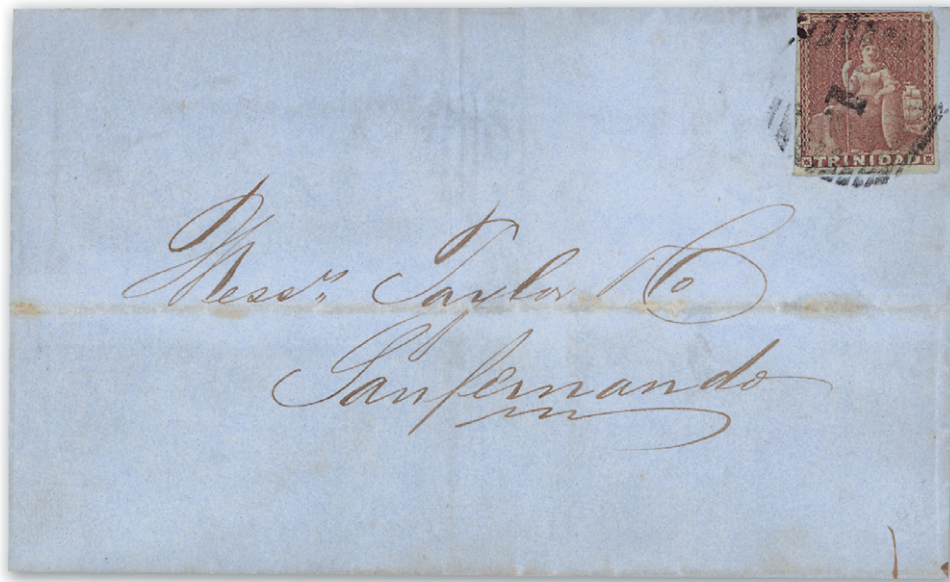 1
TRINIDAD
Messrs Taylor & Co
Sanfernando